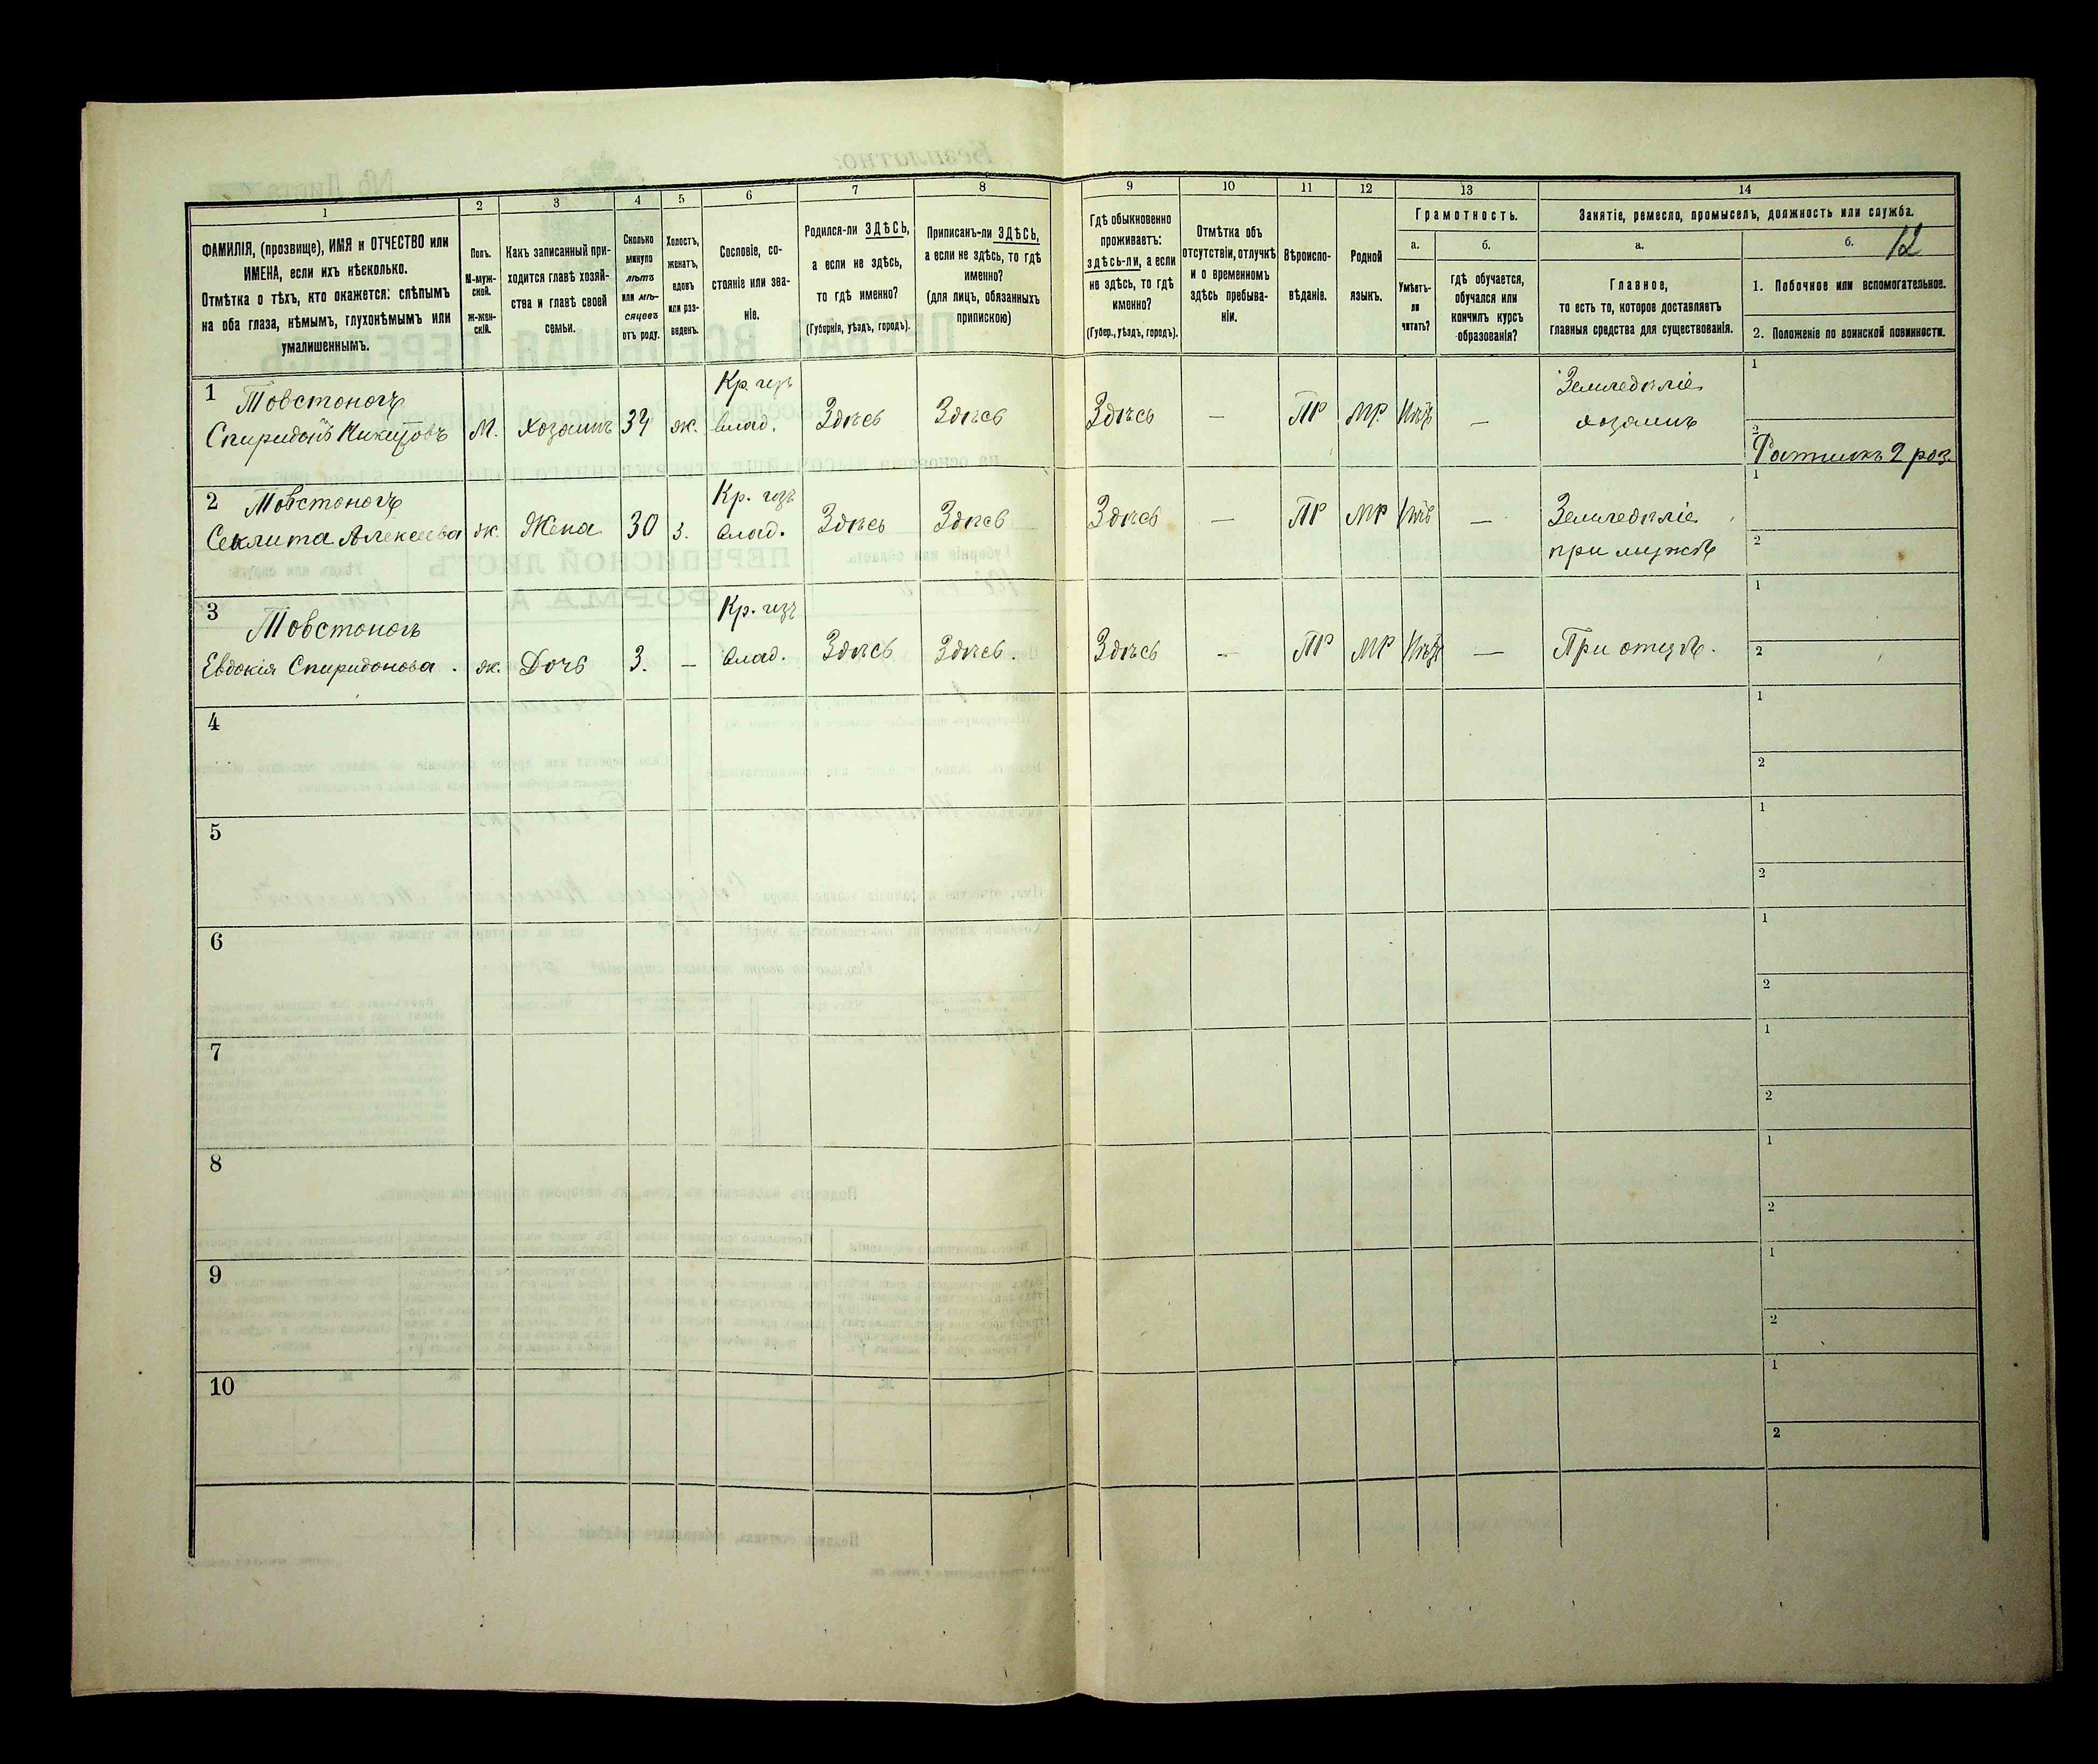 1 2 3 4 5 6 7 8 9 10 11 12 13 14
ФАМИЛІЯ, (прозвище), ИМЯ и ОТЧЕСТВО или
ИМЕНА, если ихъ нѣсколько.
Отмѣтка о тѣхъ, кто окажется: слѣпымъ
на оба глаза, нѣмымъ, глухонѣмымъ или
умалишеннымъ.
Полъ.
М-муж-
ской.
Ж-жен-
скій.
Какъ записанный при-
ходится главѣ хозяй-
ства и главѣ своей
семьи.
Сколько
минуло
лѣтъ
или мѣ-
сяцевъ
отъ роду.
Холостъ,
женатъ,
вдовъ
или раз-
веденъ.
Сословіе, со-
стояніе или зва-
ніе.
Родился-ли ЗДѢСЬ,
а если не здѣсь,
то гдѣ именно?
(Губернія, уѣздъ, городъ).
Приписанъ-ли ЗДѢСЬ,
а если не здѣсь, то гдѣ
именно?
(для лицъ, обязанныхъ
припискою)
Гдѣ обыкновенно
проживаетъ:
здѣсь-ли, а если
не здѣсь, то гдѣ
именно?
(Губер., уѣздъ, городъ).
Отмѣтка объ
отсутствіи, отлучкѣ
и о временномъ
здѣсь пребыва-
ніи.
Вѣроиспо-
вѣданіе.
Родной
языкъ.
Грамотность.
а.
Умѣетъ-
ли
читать?
б.
гдѣ обучается,
обучался или
кончилъ курсъ
образованія?
Занятіе, ремесло, промыселъ, должность или служба.
а.
Главное,
то есть то, которое доставляетъ
главныя средства для существованія.
б. 12
1. Побочное или вспомогательное.
2. Положеніе по воинской повинности.
1 Товстоногъ
Спиридонъ Никитовъ М. Хозаинъ 34 ж. Кр. изъ
влад. Здѣсь Здѣсь Здѣсь — ПР МР. Нѣтъ — Земледѣліе
хозаинъ
1
2 Ратникъ 2 раз.
2 Товстоногъ
Секлита Алексѣева ж. Жена 30 з. Кр. изъ
влад. Здѣсь Здѣсь Здѣсь — ПР МР Нѣтъ — Земледѣліе
при мужѣ
1
2
3 Товстоногъ
Евдокія Спиридонова. ж. Дочь 3. — Кр. изъ
влад. Здѣсь Здѣсь. Здѣсь — ПР МР Нѣтъ — При отцѣ.
1
2
4
1
2
5
1
2
6
1
2
7
1
2
8
1
2
9
1
2
10
1
2